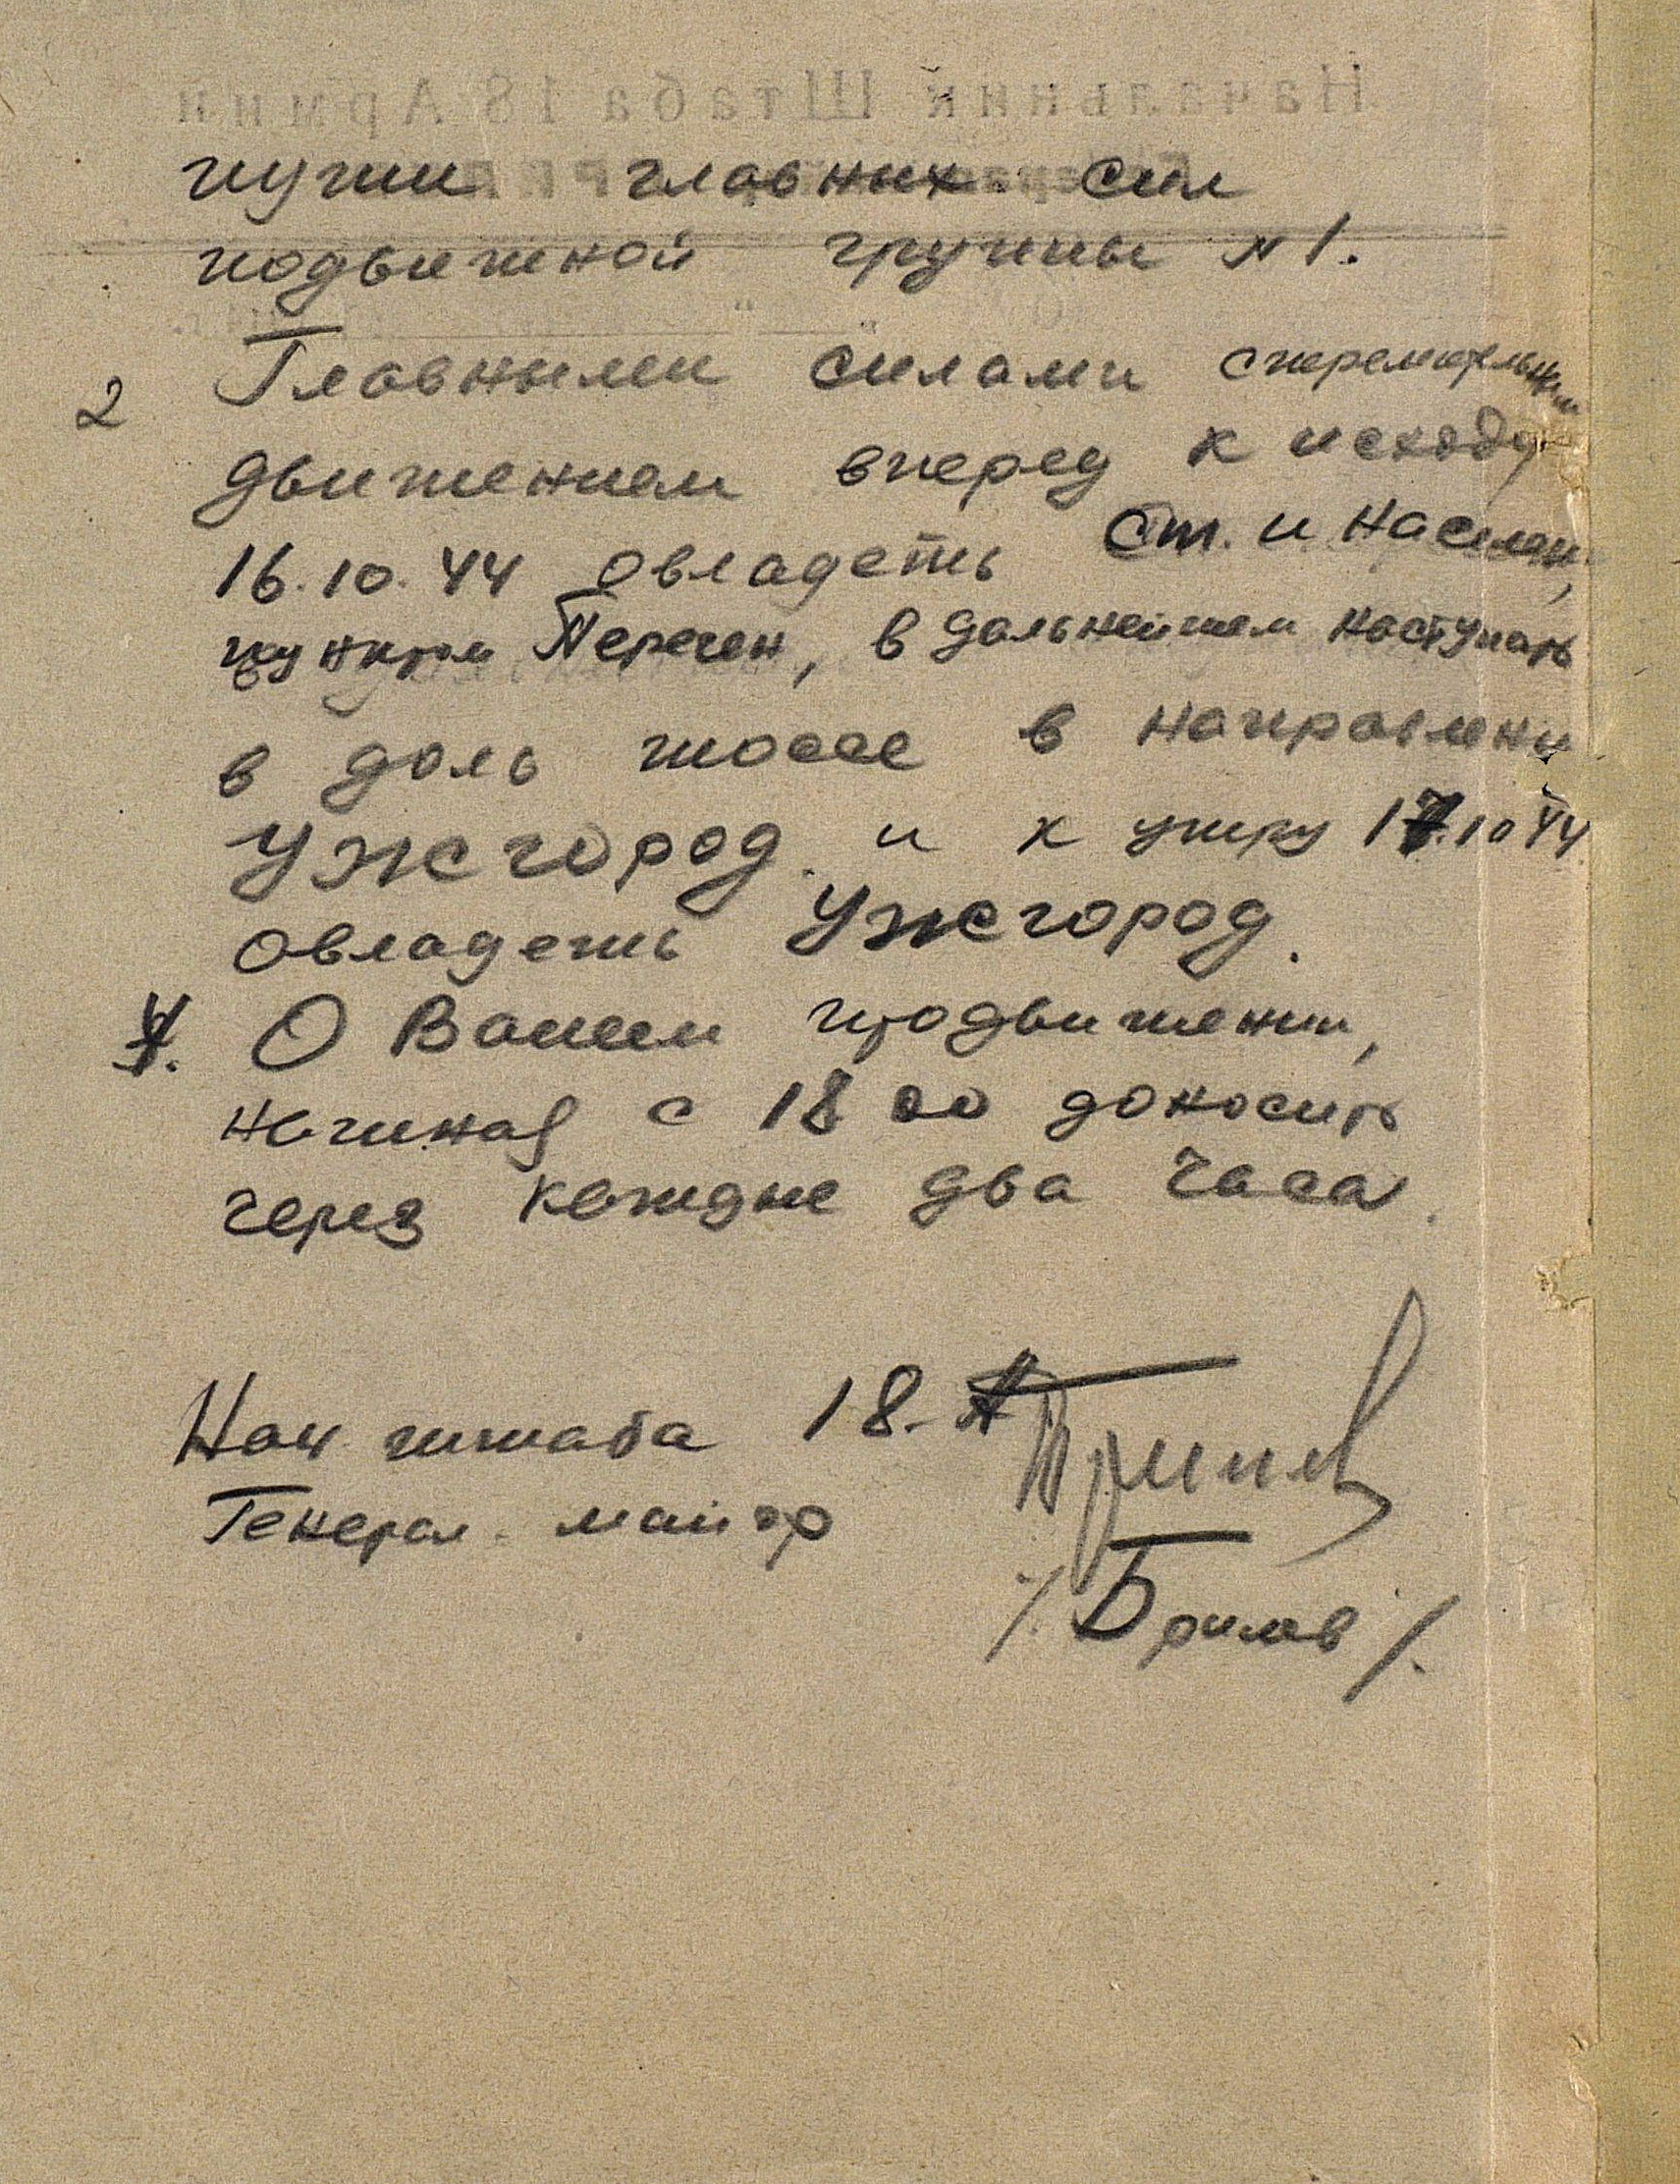 пути главных сил
подвижной группы N 1.
2 Главными силами стремительным
движением вперед к исходу
16.10.44 овладеть ст. и населен.
пунктом Перечен, в дальнейшем наступать
в доль шоссе в направлени
Ужгород и к утру 17.10 44.
овладеть Ужгород.
4. О Вашем продвижении,
начиная с 18 00 доносить
через каждые два часа.
Нач штаба 18-А
Генерал-майор
/Брилев/.